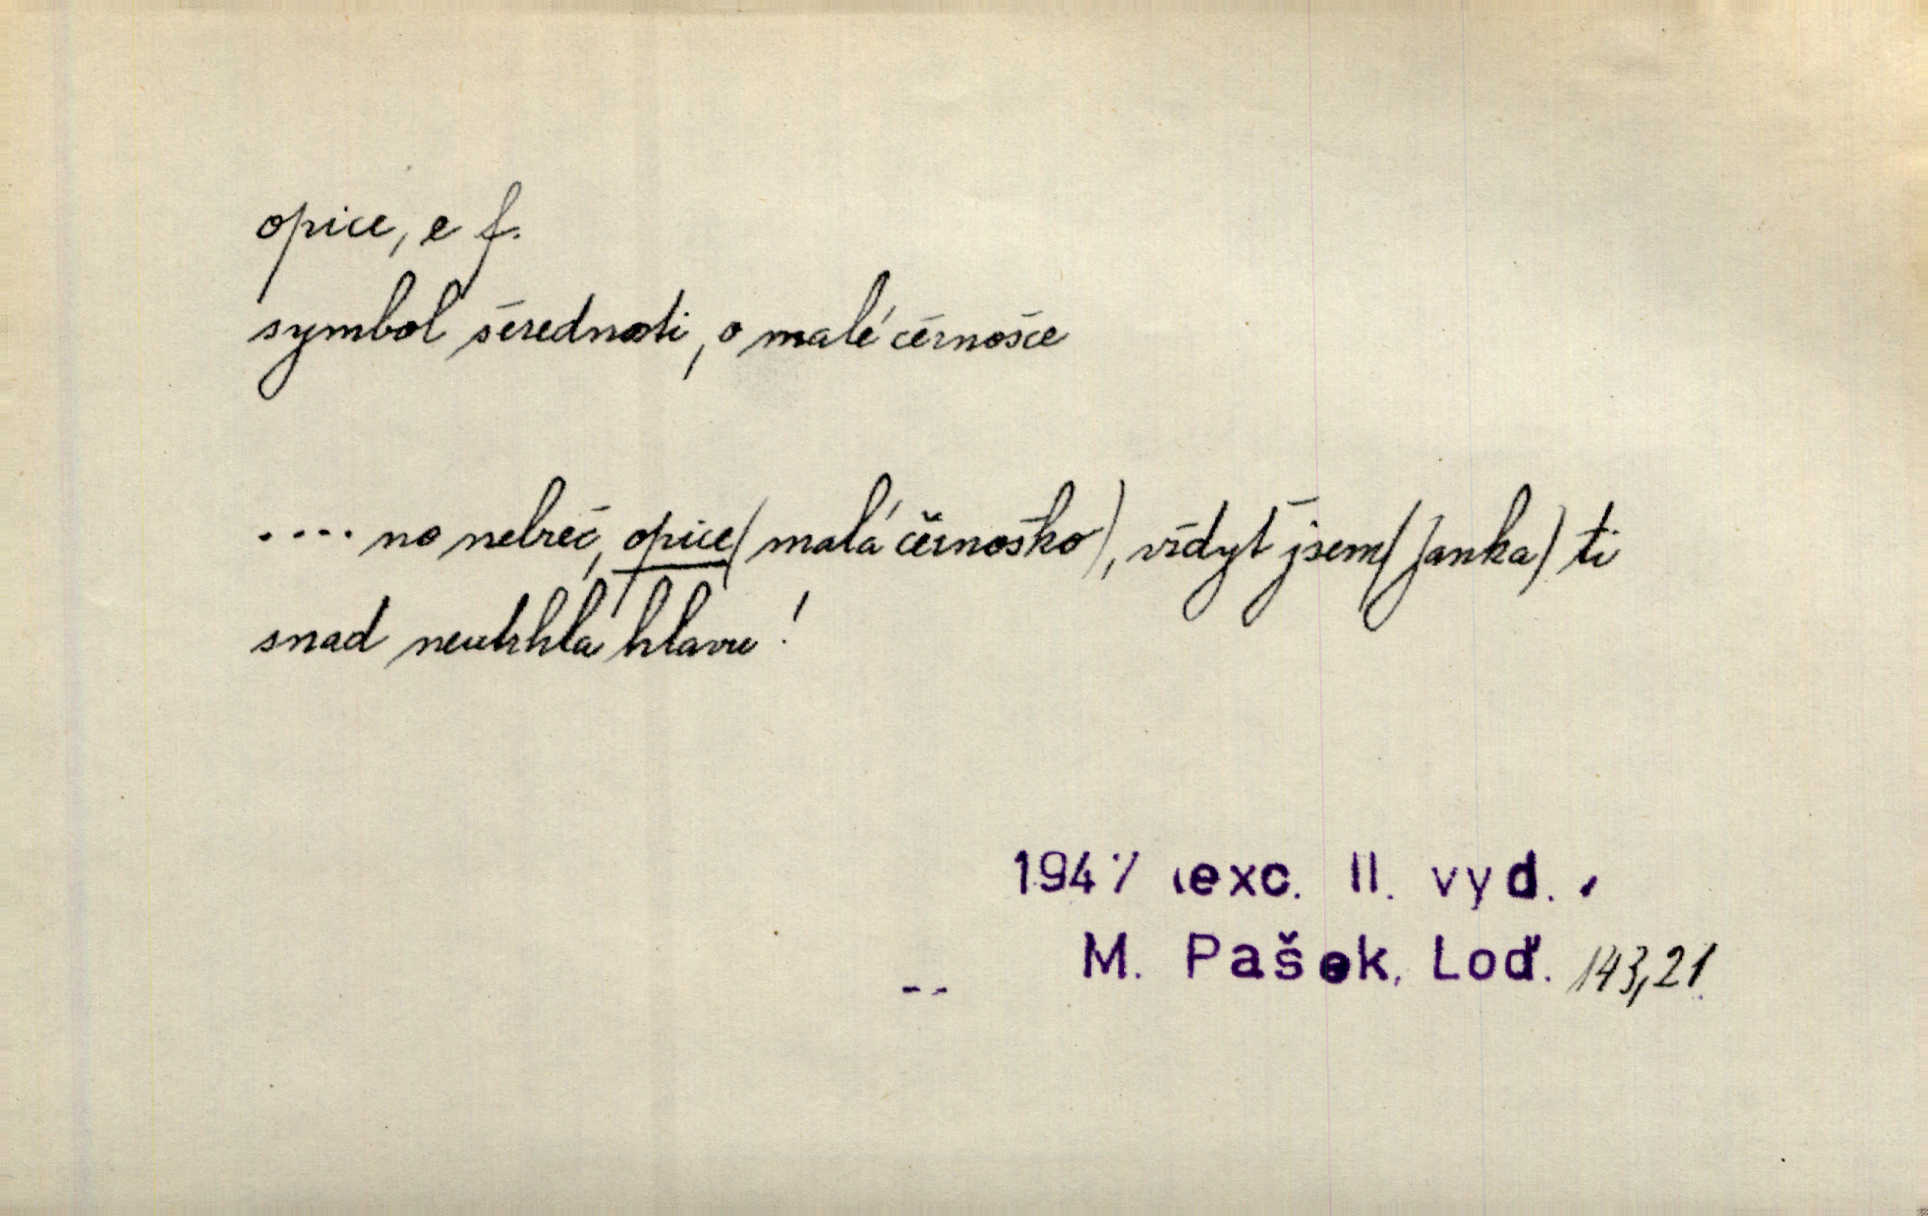 opice, e f.
symbol šerednosti, o malé černošce
.... no nebreč, opice (malá černoško), vždyť jsem (Janka) ti
snad neutrhla hlavu!
1947 (exc. II. vyd.
M. Pašek, Loď. 143,21
--